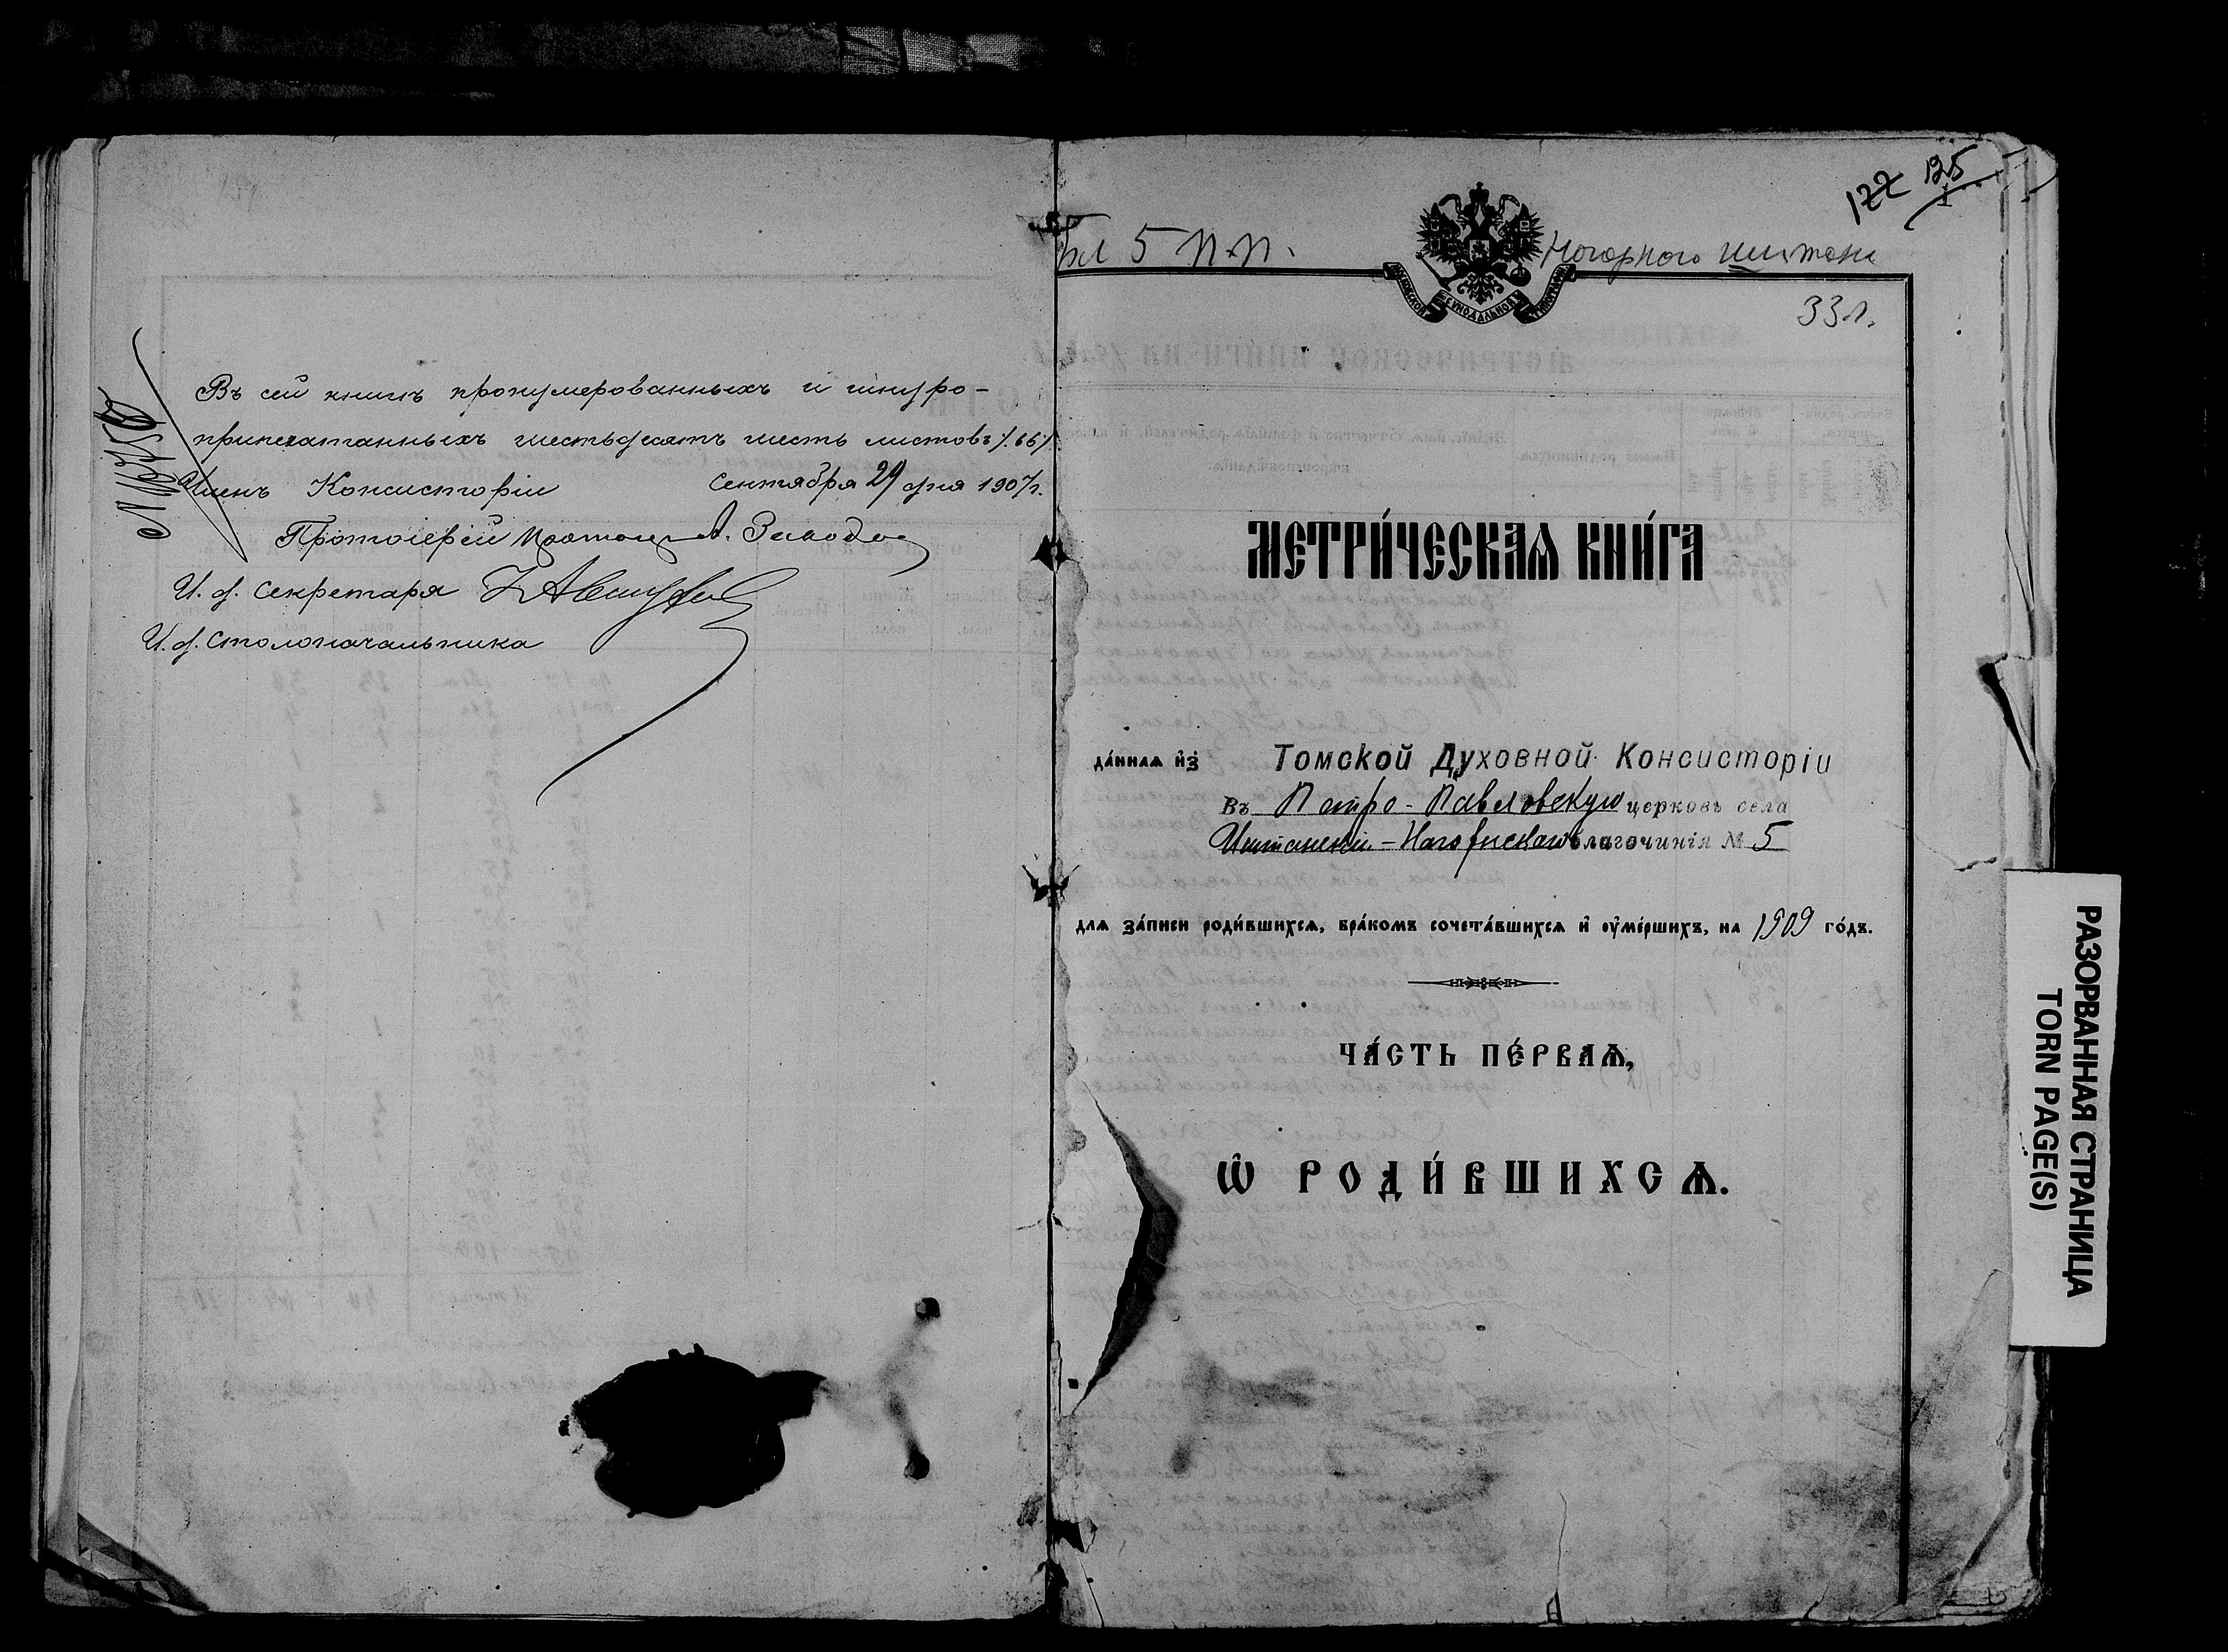 Въ сей книгѣ пронумерованныхъ и шнуро-
припечатанныхъ шестьдесятъ шесть листовъ ⁒ 66 ⁒
Членъ Консисторіи Сентября 29 дня 1907 г.
Протоіерей
И. д. Секретаря
И. д. Столоначальника
122 125
бл 5 п.п. Ногорного иштана
33 л.
МЕТРИ́ЧЕСКАѦ КНИ́ГА
да́ннаѧ и҆з̾ Томской Духовной Консисторіи
Въ Петро-Павловскую церковь села
Иштанско-Нагорнскаго благочинія № 5
для за́писи роди́вшихсѧ, бра́комъ сочета́вшихсѧ и҆ оу҆ме́ршихъ, на 1909 го́дъ.
ЧА́СТЬ ПЕ́РВАѦ,
Ѽ РОДИ́ВШИХСѦ.
РАЗОРВАННАЯ СТРАНИЦА
TORN PAGE(S)